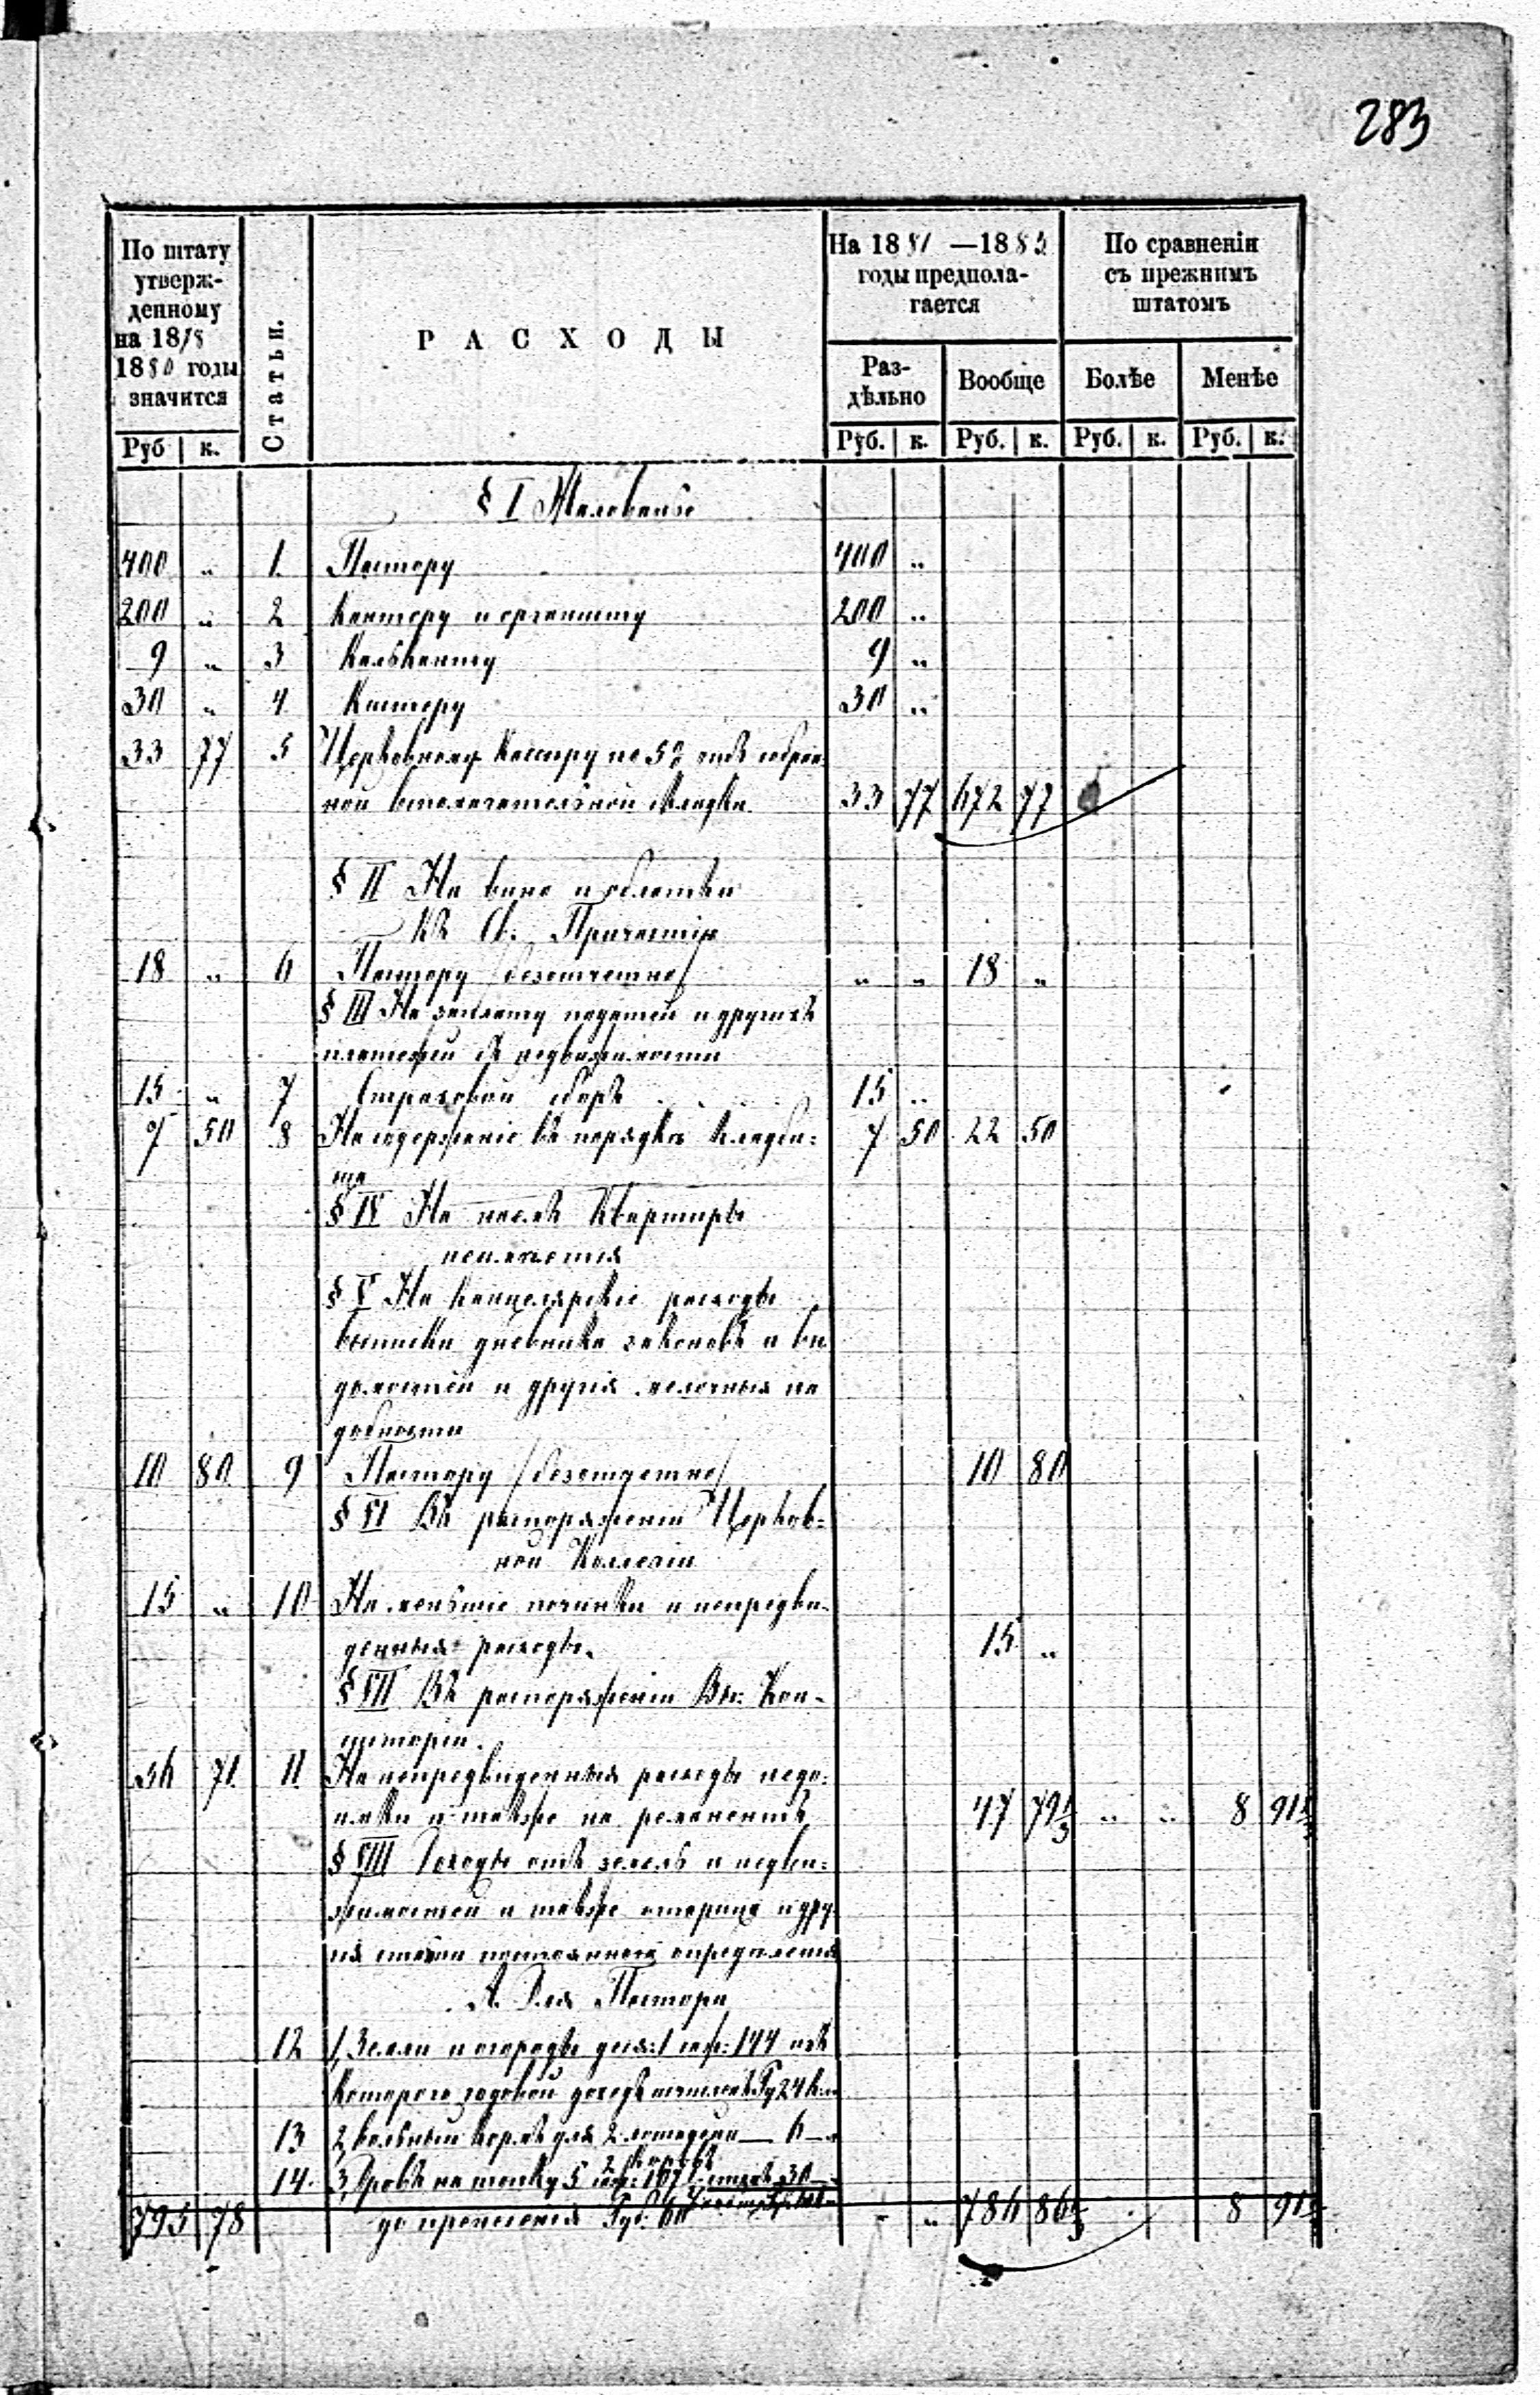 283
По штату утверж-денному на 18/8 1880 годы значится
Статьи.
РАСХОДЫ
На 1881 —1883 годы предпола-гается
По сравненіи съ прежнимъ штатомъ
Раз-дѣльно Вообще Болѣе Менѣе
Руб к. Руб. к. Руб. к. Руб. к. Руб. к.
§ I Жалованье
400 „ 1. Пастору 400 „
200 „ 2 Кантору и органисту 200 „
9 „ 3 Кальканту 9 „
30 „ 4 Кистеру 30 „
33 77 5 Церковному Кассиру по 5% отъ собран-
ной вспомогательной складки 33 77 672 77
§ II На вино и облатки
къ Св. Причастію
18 „ 6 Пастору /безотчетно/ „ „ 18 „
§ III На уплату податей и другихъ
платежей съ недвижимости
15 „ 7 Страховой сборъ 15 „
7 50 8 На содержаніе въ порядкѣ кладби= 7 50 22 50
ща
§ IV На наемъ Квартиры
неимѣется
§ V На канцелярскіе расходы
выписки дневника законовъ и вѣ
домостей и другія мелочныя на
добности
10 80 9 Пастору /безотчетно/ 10 80
§ VI Въ распоряженіи Церков=
ной Коллегіи
15 „ 10 На меньшіе починки и непредви-
денныя расходы. 15 „
§ VII Въ распоряженіи Ев: Кон-
систоріи.
56 71 11 На непредвиденныя расходы недо=
имки а также на ремонентъ 47 79⅓ „ „ 8 91⅔
§ VIII Доходы отъ земель и недви=
жимостей а также
А. Для Пастора
12 1, Земли и огороды деся: 1 саж: 144 изъ
котораго годовой доходъ Ру 24 к „
13 2, вольный кормъ для 2 лошадей — 6 — „
2 коровъ
14. 3, Дровъ на топку 5 саж: 167 30
795 78 до пренесенія Руб. 60 „ „ 786 86⅓ 8 91⅔